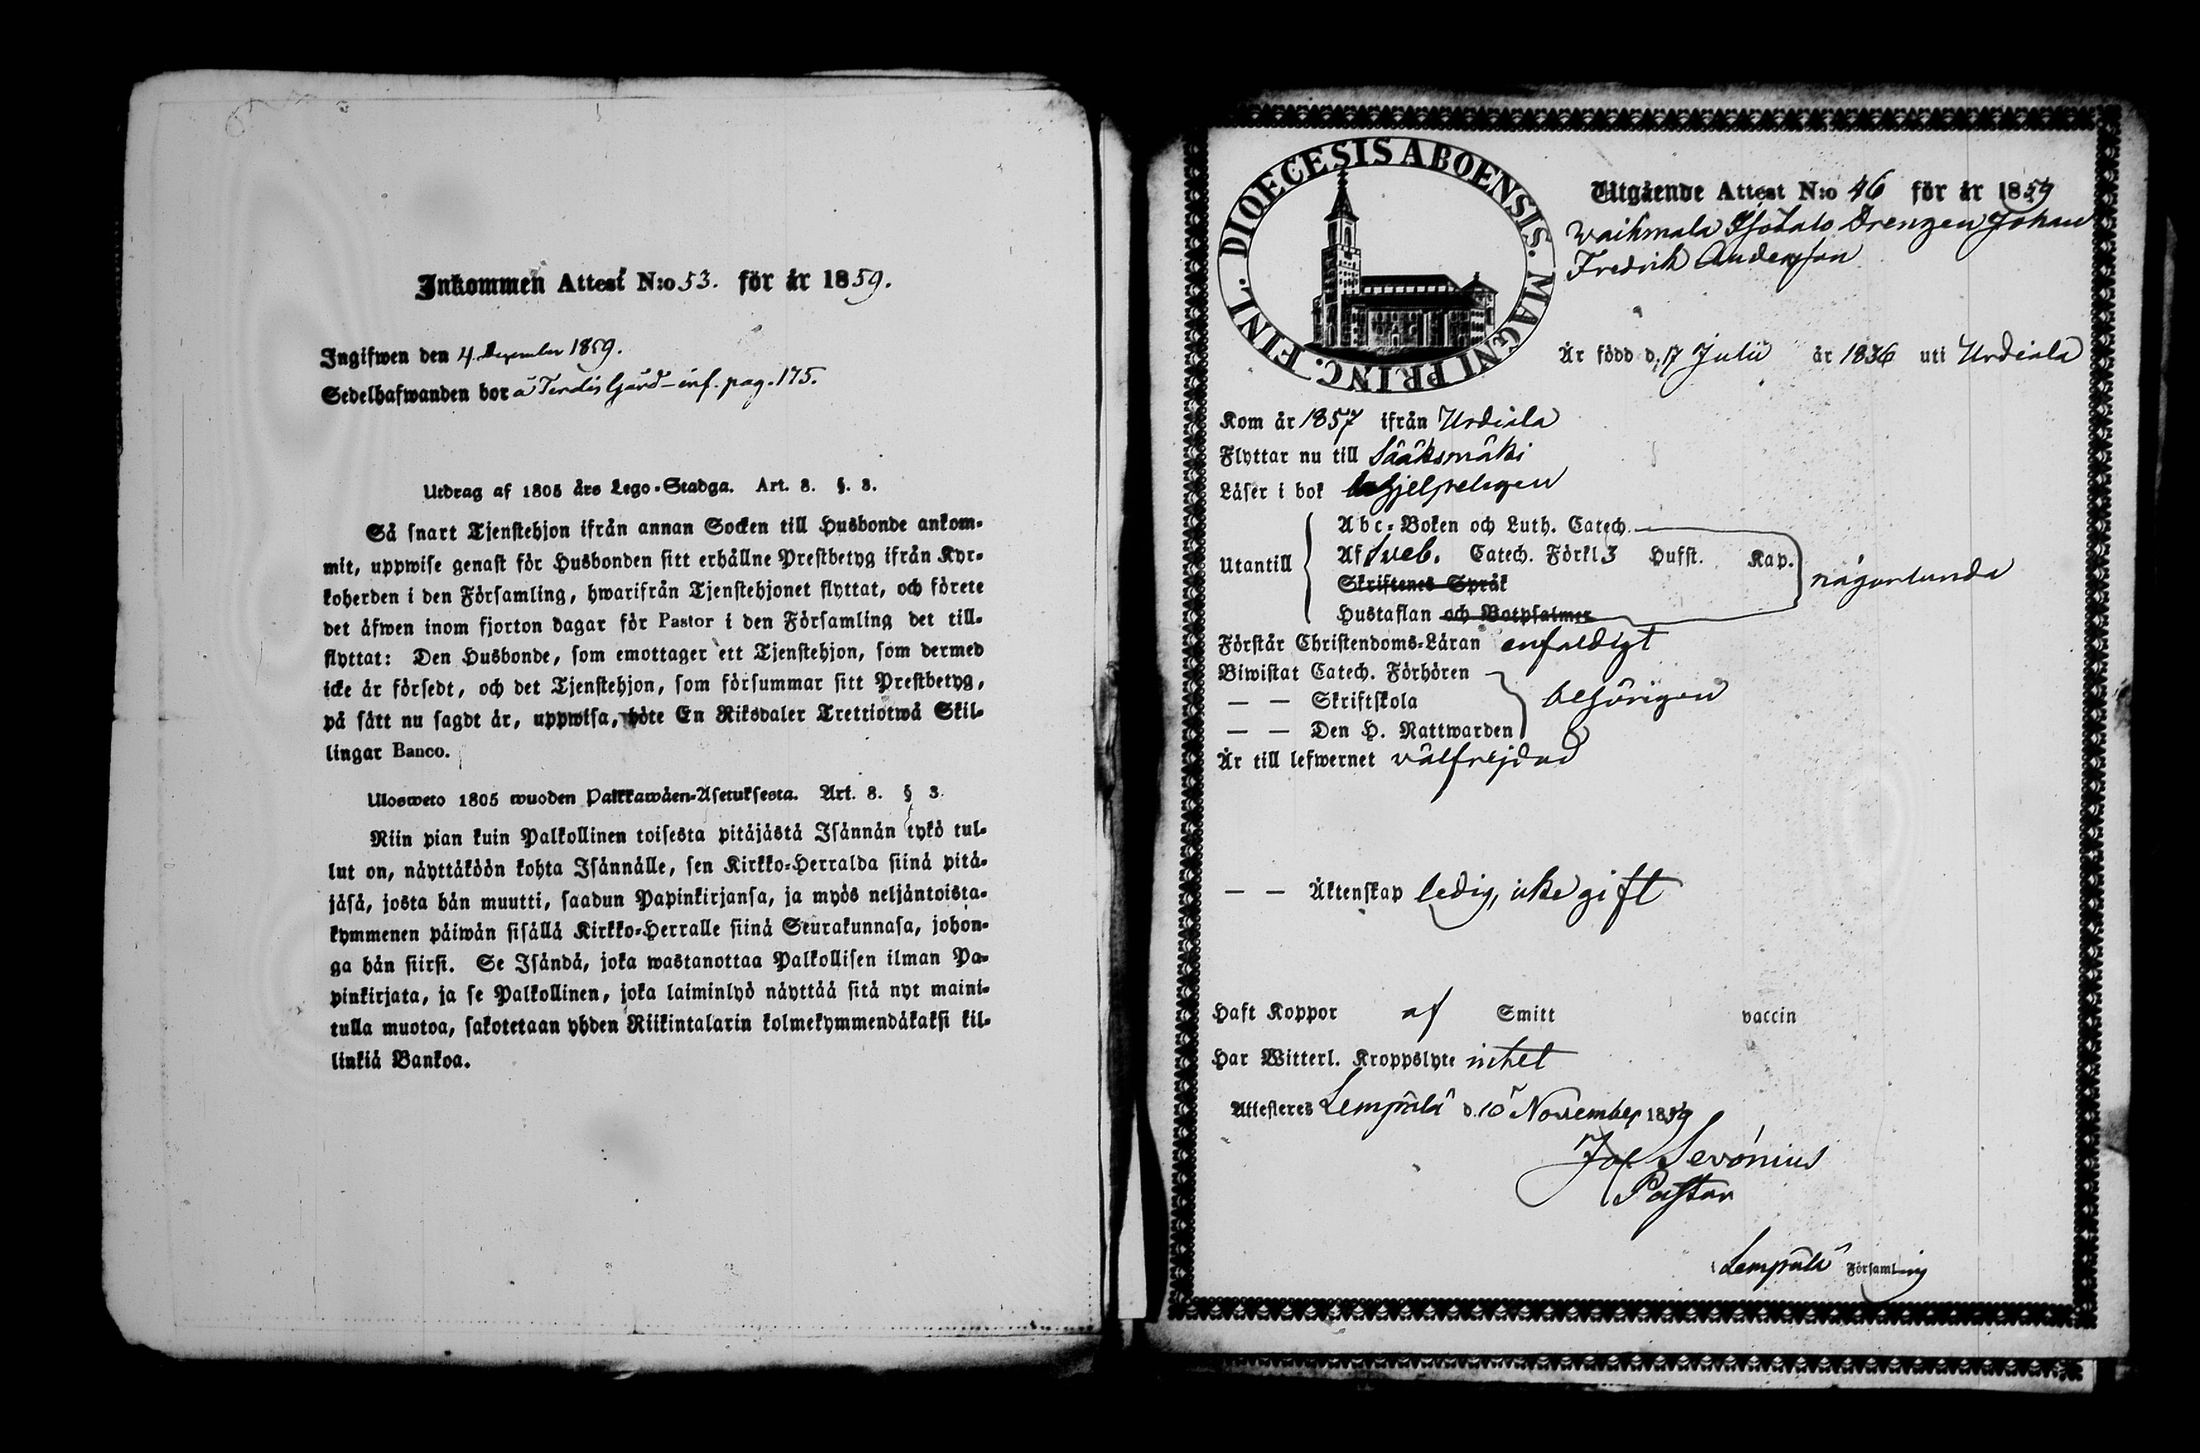 Inkommen Attest N:o 53. för år 1859.
Ingifwen den 4 December 1859.
Sedelhafwanden bor å Terdis Gård - inf. pag. 175.
Utdrag af 1805 års Lego-Stadga. Art. 8. §. 8.
Så snart Tjenstehjon ifrån annan Socken till Husbonde ankom-
mit, uppwise genast för Husbonden sitt erhållne Prestbetyg ifrån Kyr-
koherden i den Församling, hwarifrån Tjenstehjonet flyttat, och förete
det äfwen inom fjorton dagar för Pastor i den Församling det till-
flyttat: Den Husbonde, som emottager ett Tjenstehjon, som dermed
icke är försedt, och det Tjenstehjon, som försummar sitt Prestbetyg,
på sätt nu sagdt är, uppwisa, böte En Riksdaler Trettiotwå Skil-
lingar Banco.
Ulosweto 1805 wuoden Palkkawäen-Asetuksesta. Art. 8. § 3.
Niin pian kuin Palkollinen toisesta pitäjästä Isännän tykö tul-
lut on, näyttäköön kohta Isännälle, sen Kirkko-Herralda siinä pitä-
jäsä, josta hän muutti, saadun Papinkirjansa, ja myös neljäntoista-
kymmenen päiwän sisällä Kirkko-Herralle siinä Seurakunnasa, johon-
ga hän siirsi. Se Isändä, joka wastanottaa Palkollisen ilman Pa-
pinkirjata, ja se Palkollinen, joka laiminlyö näyttää sitä nyt maini-
tulla muotoa, sakotetaan yhden Riikintalarin kolmekymmendäkaksi kil-
linkiä Bankoa.
DIOECESIS ABOENSIS. MAGNI PRINC. FINL.
Utgående Attest N:o 46 för år 1859
Waihmala Drengen Johan
Fredrik Andersson
Är född d. 17 Julii år 1836 uti Urdiala
Kom år 1857 ifrån Urdiala
Flyttar nu till Sääksmäki
Läser i bok hjelpeligen
Utantill
Abc-Boken och Luth. Catech.
Af Sveb. Catech. Förkl 3 Hufst. Kap.
Skriftenes Språk
Hustaflan och Botpsalmer
någorlunda
Förstår Christendoms-Läran enfaldigt
Biwistat Catech. Förhören
— — Skriftskola
— — Den H. Nattwarden
behörigen
Är till lefwernet välfrejdad
— — Äktenskap ledig, icke gift
Haft Koppor af Smitt vaccin
Har Witterl. Kroppslyte intet
Attesteres Lempälä d. 10 November 1859
Jos Sevónius
Pastor
i Lempälä Församling